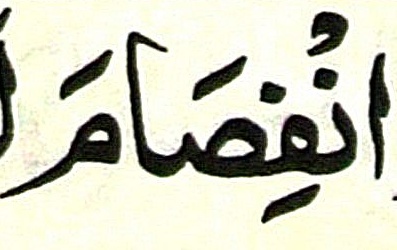 انْفِصَامَ